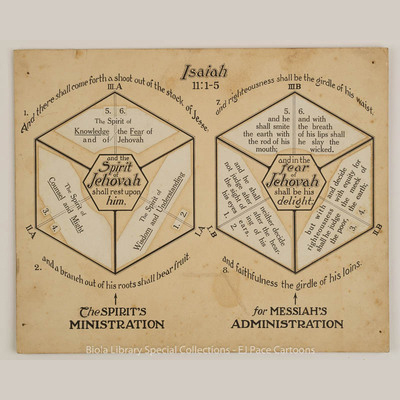 Isaiah
11:1-5
1. And there shall come forth a shoot out of the stock of Jesse.
III A
5. 6.
The Spirit of
Knowledge the Fear of
and of Jehovah
and the
Spirit
of
Jehovah
shall rest upon
him.
The Spirit of
Counsel and Might
3. 4.
II.A
The Spirit of
Wisdom and Understanding
1. 2.
I.A
2. and a branch out of his roots shall bear fruit
The SPIRIT'S
MINISTRATION
7. and righteousness shall be the girdle of his waist
III B
5.
and he
shall smite
the earth with
the rod of his
mouth;
6.
and with
the breath
of his lips shall
he slay the
wicked.
and in the
fear
of
Jehovah
shall be his
delight;
and he shall
not judge after
the sight of
his eyes
1.
neither decide
after the hear-
ing of his
ears.
2.
I.B
but with
righteousness
shall he judge
the poor,
3.
and decide
with equity for
the meek of
the earth:
4.
II.B
8. and faithfulness the girdle of his loins.
for MESSIAH'S
ADMINISTRATION
Biola Library Special Collections - EJ Pace Cartoons